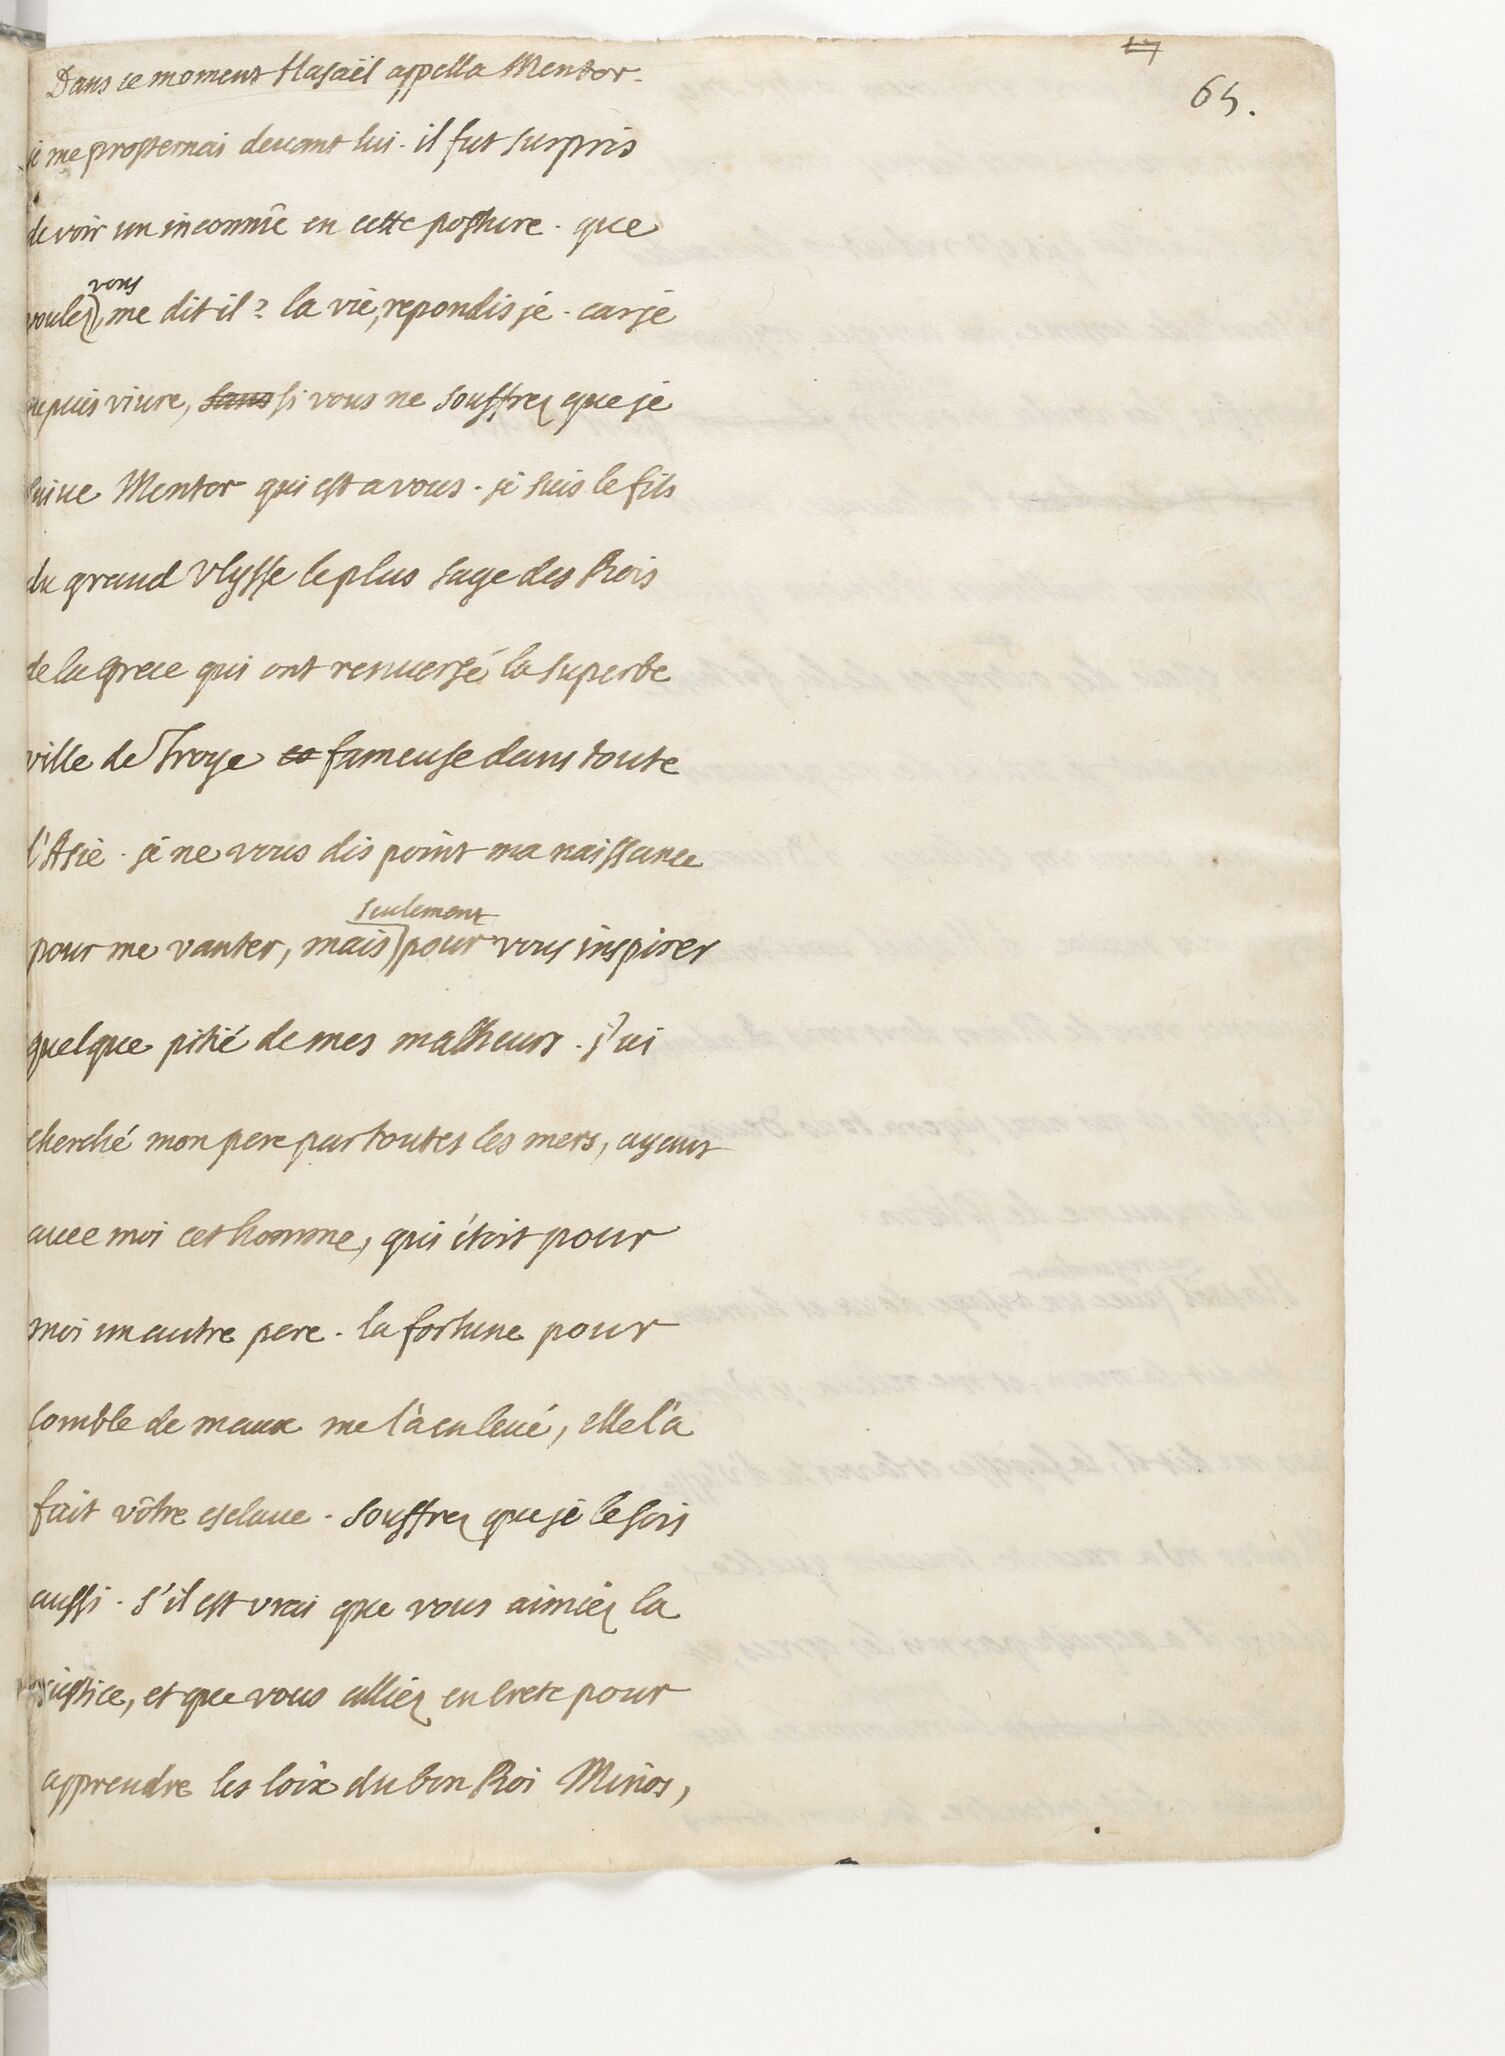 17
65.
Dans ce moment Hasaël appella Mentor.
je me prosternai devant lui. il fut surpris
de voir un inconnu en cette posture. que
vous
voulez, me dit il? la vie, repondis je. car je
ne puis vivre, sans si vous ne souffrez que je
suive Mentor qui est a vous. je suis le fils
du grand Vlysse le plus sage des Rois
de la Grece qui ont renversé la superbe
ville de Troye et fameuse dans toute
l'Asie. je ne vous dis point ma naissance
seulement
pour me vanter, mais pour vous inspirer
quelque pitié de mes malheurs. j'ai
cherché mon pere par toutes les mers, ayant
avec moi cet homme, qui étoit pour
moi un autre pere. la fortune pour
comble de maux me l'a enlevé, elle l'a
fait vôtre esclave. souffrez que je le sois
aussi. s'il est vrai que vous aimiez la
justice, et que vous alliez en Crete pour
apprendre les loix du bon Roi Minos,